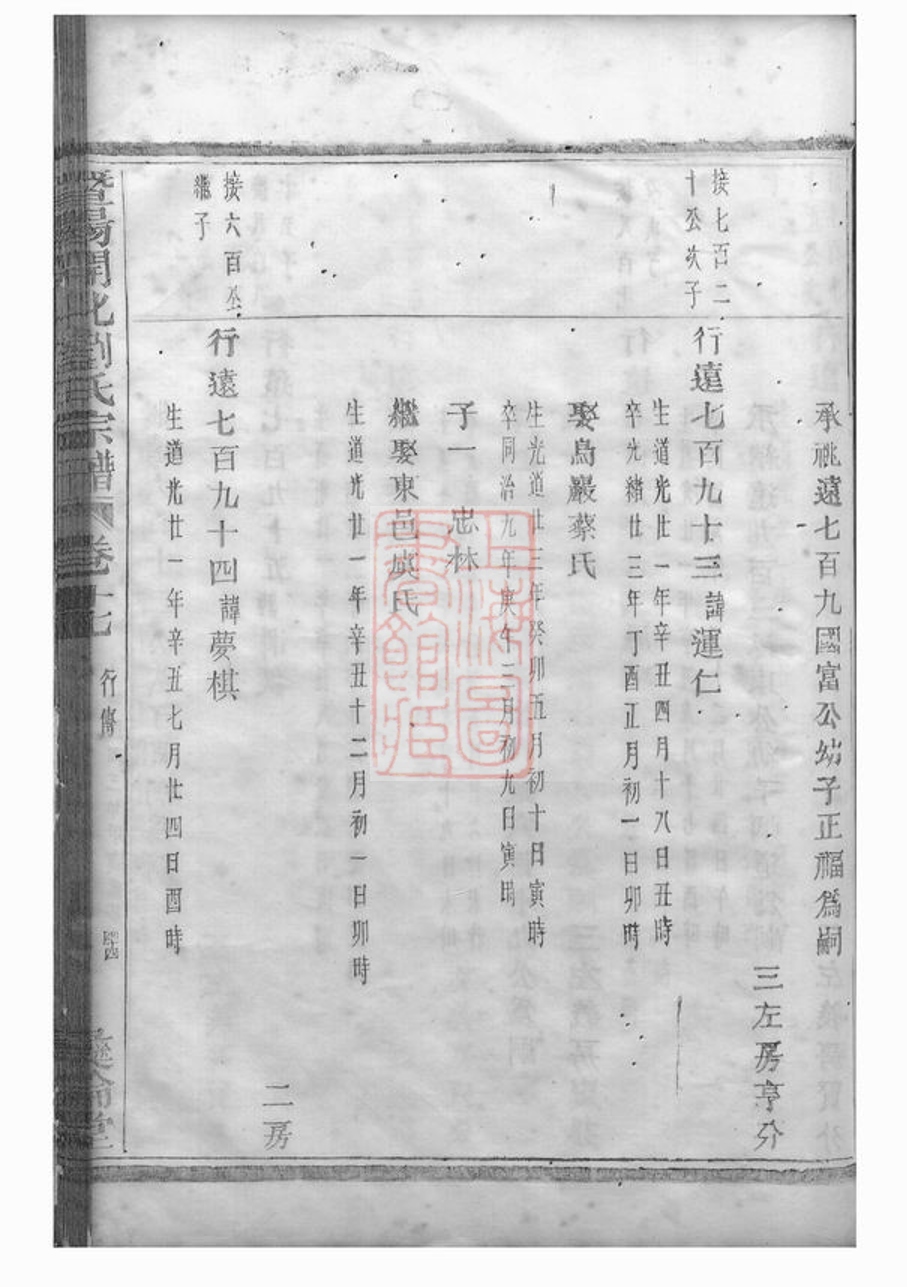 承祧遠七百九國富公幼子正福爲嗣
三左房亨分
接七百二
十公次子
行遠七百九十三諱運仁
生道光廿一年辛丑四月十八日丑時
卒光緒廿三年丁酉正月初一日卯時
娶烏巖蔡氏
生光道廿三年癸卯五月初十日寅時
卒同治九年庚午二月初九日寅時
子一 忠林
繼娶東邑虞氏
生道光廿一年辛丑十二月初一日卯時
二房
接六百公
繼子
行遠七百九十四諱夢棋
生道光廿一年辛丑七月廿四日酉時
暨陽開化劉氏宗譜 卷十七 行傳
上海圖書館藏